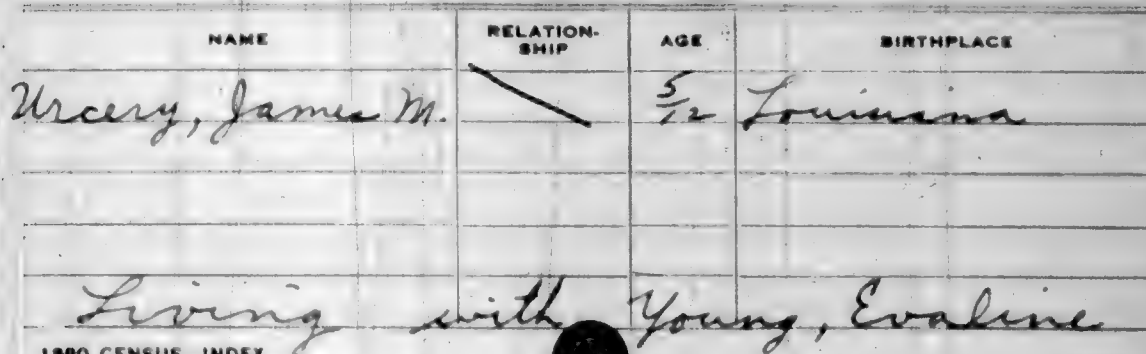 NAME RELATION-SHIP AGE BIRTHPLACE
Urcery, James M. 5/12 Louisiana
Living with Young, Evaline
1880 CENSUS INDEX